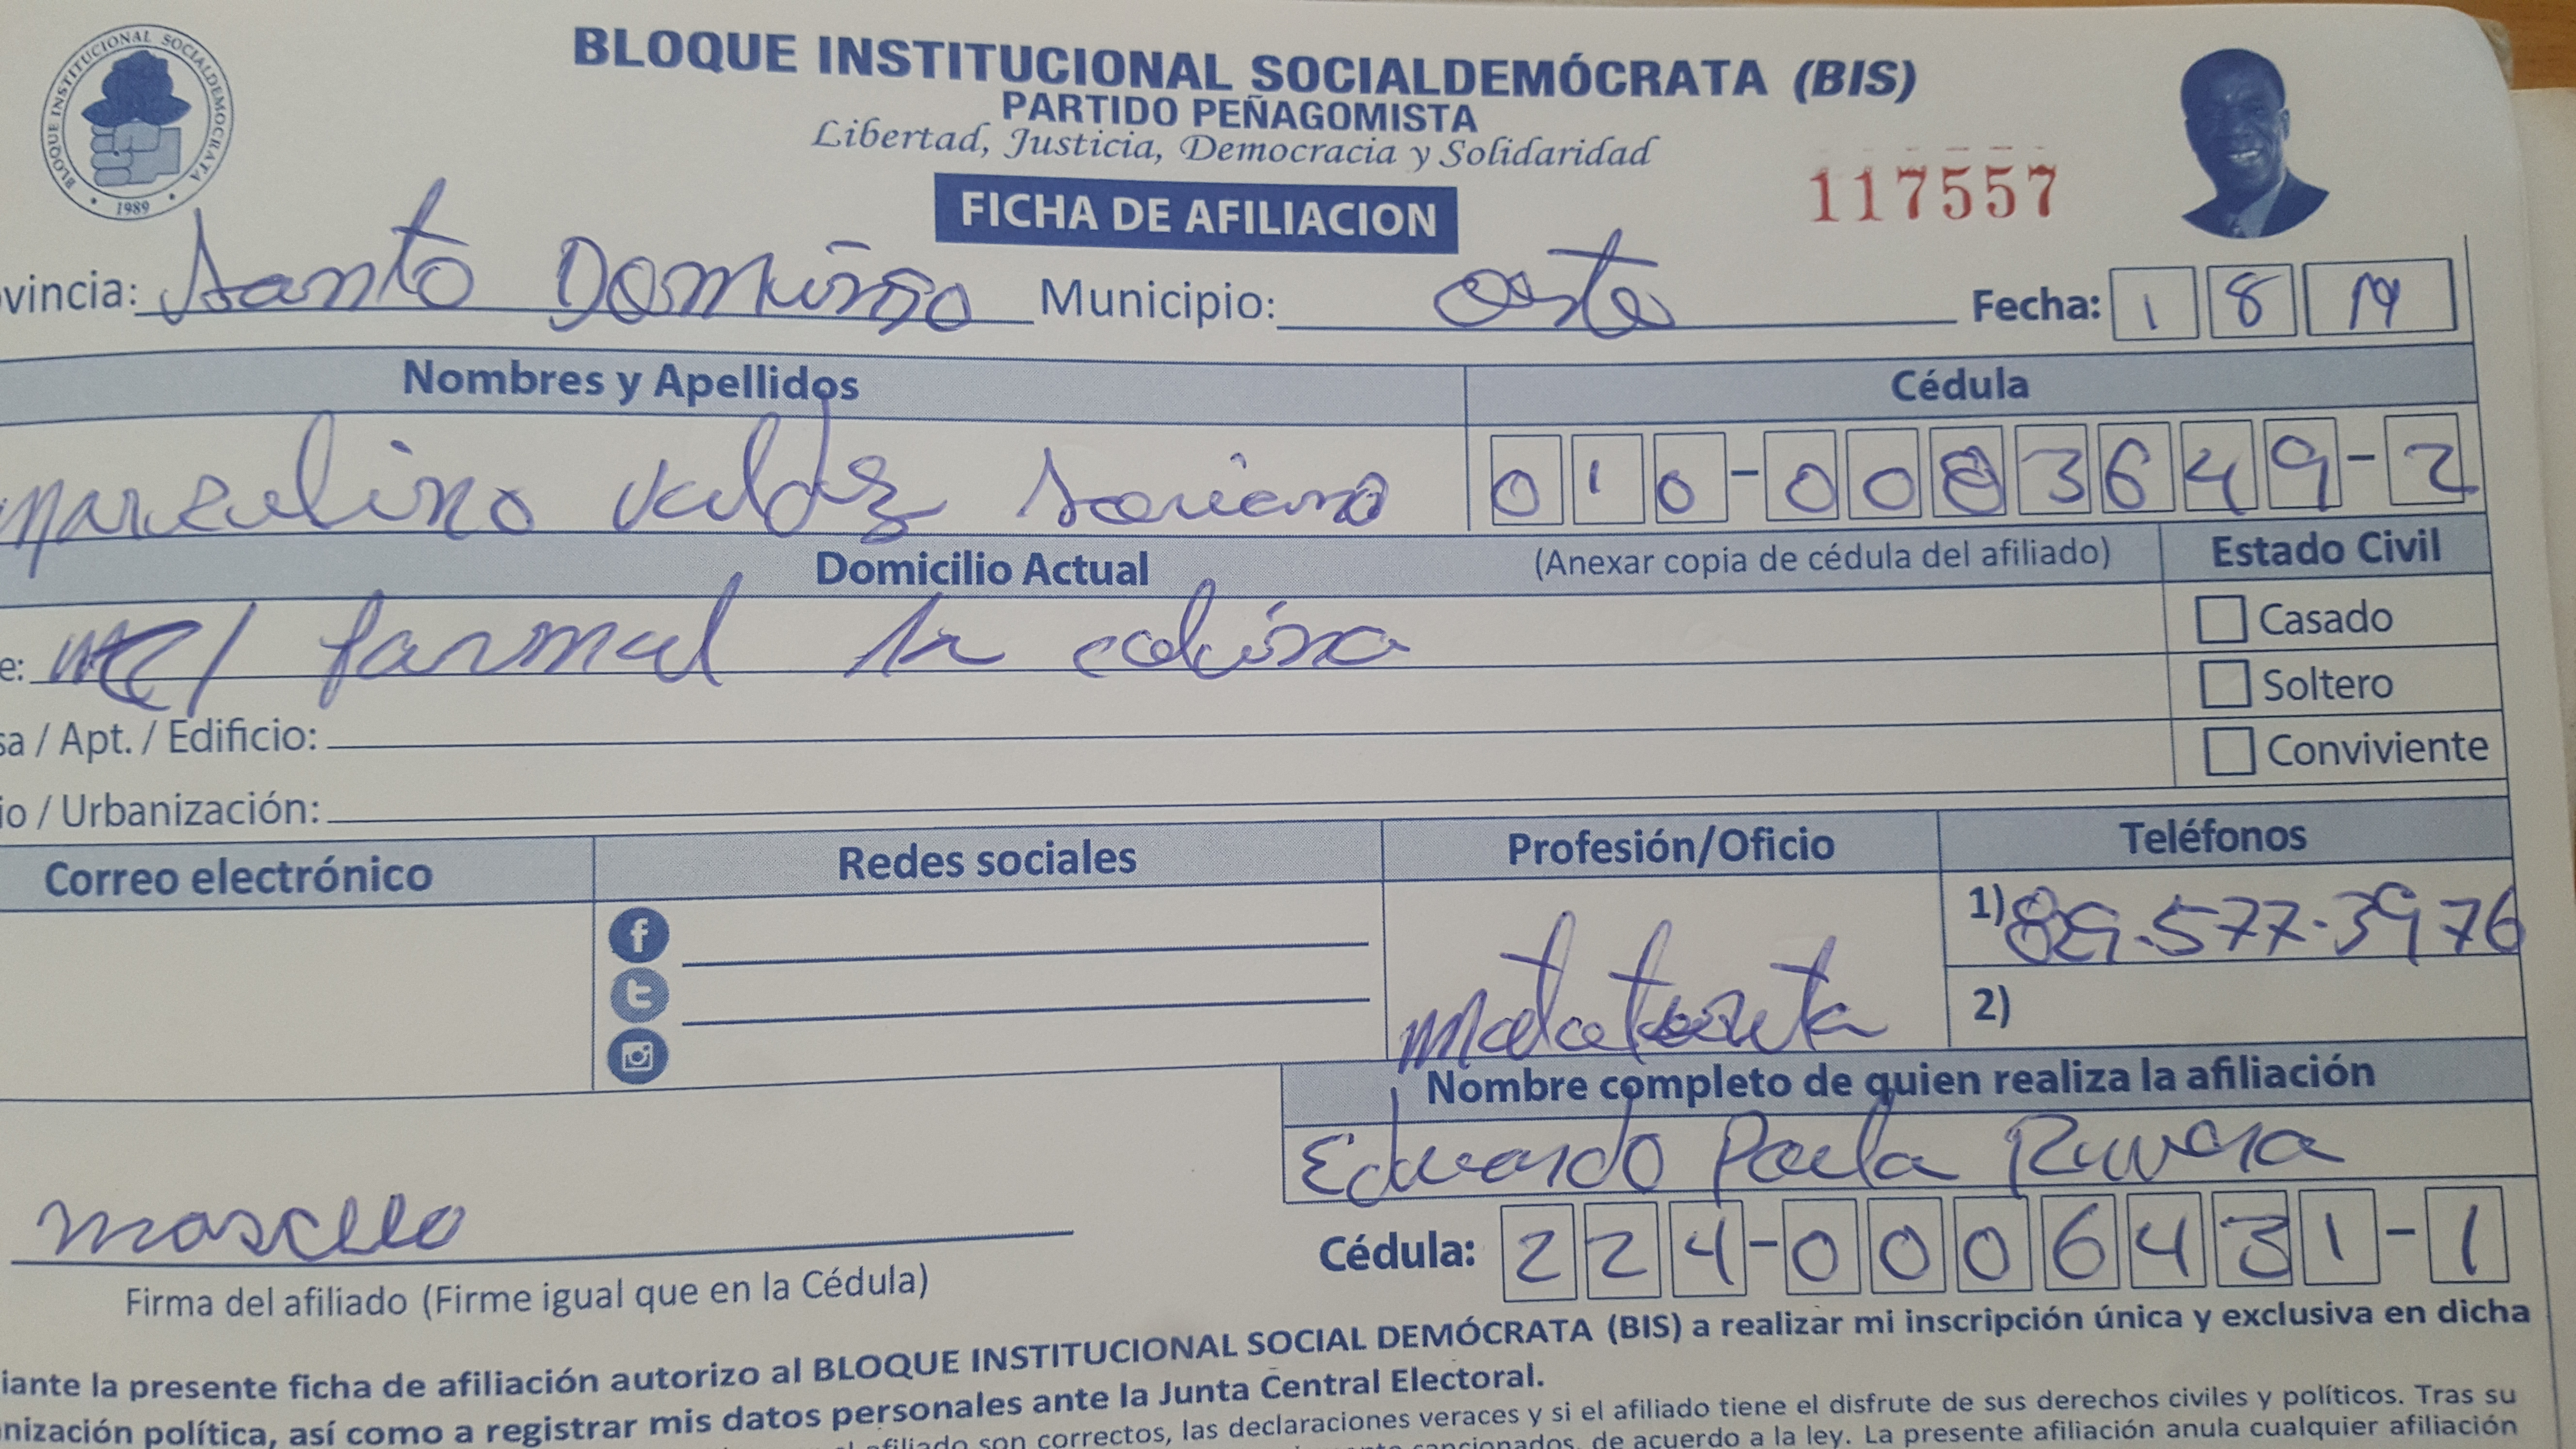 BLOQUE INSTITUCIONAL SOCIALDEMOCRATA
1989
BLOQUE INSTITUCIONAL SOCIALDEMÓCRATA (BIS)
PARTIDO PEÑAGOMISTA
Libertad, Justicia, Democracia y Solidaridad
FICHA DE AFILIACION
117557
vincia: Santo Domingo Municipio: oeste Fecha: 1 8 19
Nombres y Apellidos Cédula
valdez Soriano 010-0083649-2
Domicilio Actual (Anexar copia de cédula del afiliado) Estado Civil
e: la colina Casado
Soltero
sa / Apt. / Edificio:
Conviviente
io / Urbanización:
Correo electrónico Redes sociales Profesión/Oficio Teléfonos
1) 577-3976
2)
Nombre completo de quien realiza la afiliación
Eduardo Paula Rivera
Cédula: 224-0006431-1
Firma del afiliado (Firme igual que en la Cédula)
iante la presente ficha de afiliación autorizo al BLOQUE INSTITUCIONAL SOCIAL DEMÓCRATA (BIS) a realizar mi inscripción única y exclusiva en dicha
nización política, así como a registrar mis datos personales ante la Junta Central Electoral.
afiliado son correctos, las declaraciones veraces y si el afiliado tiene el disfrute de sus derechos civiles y políticos. Tras su
sancionados, de acuerdo a la ley. La presente afiliación anula cualquier afiliación